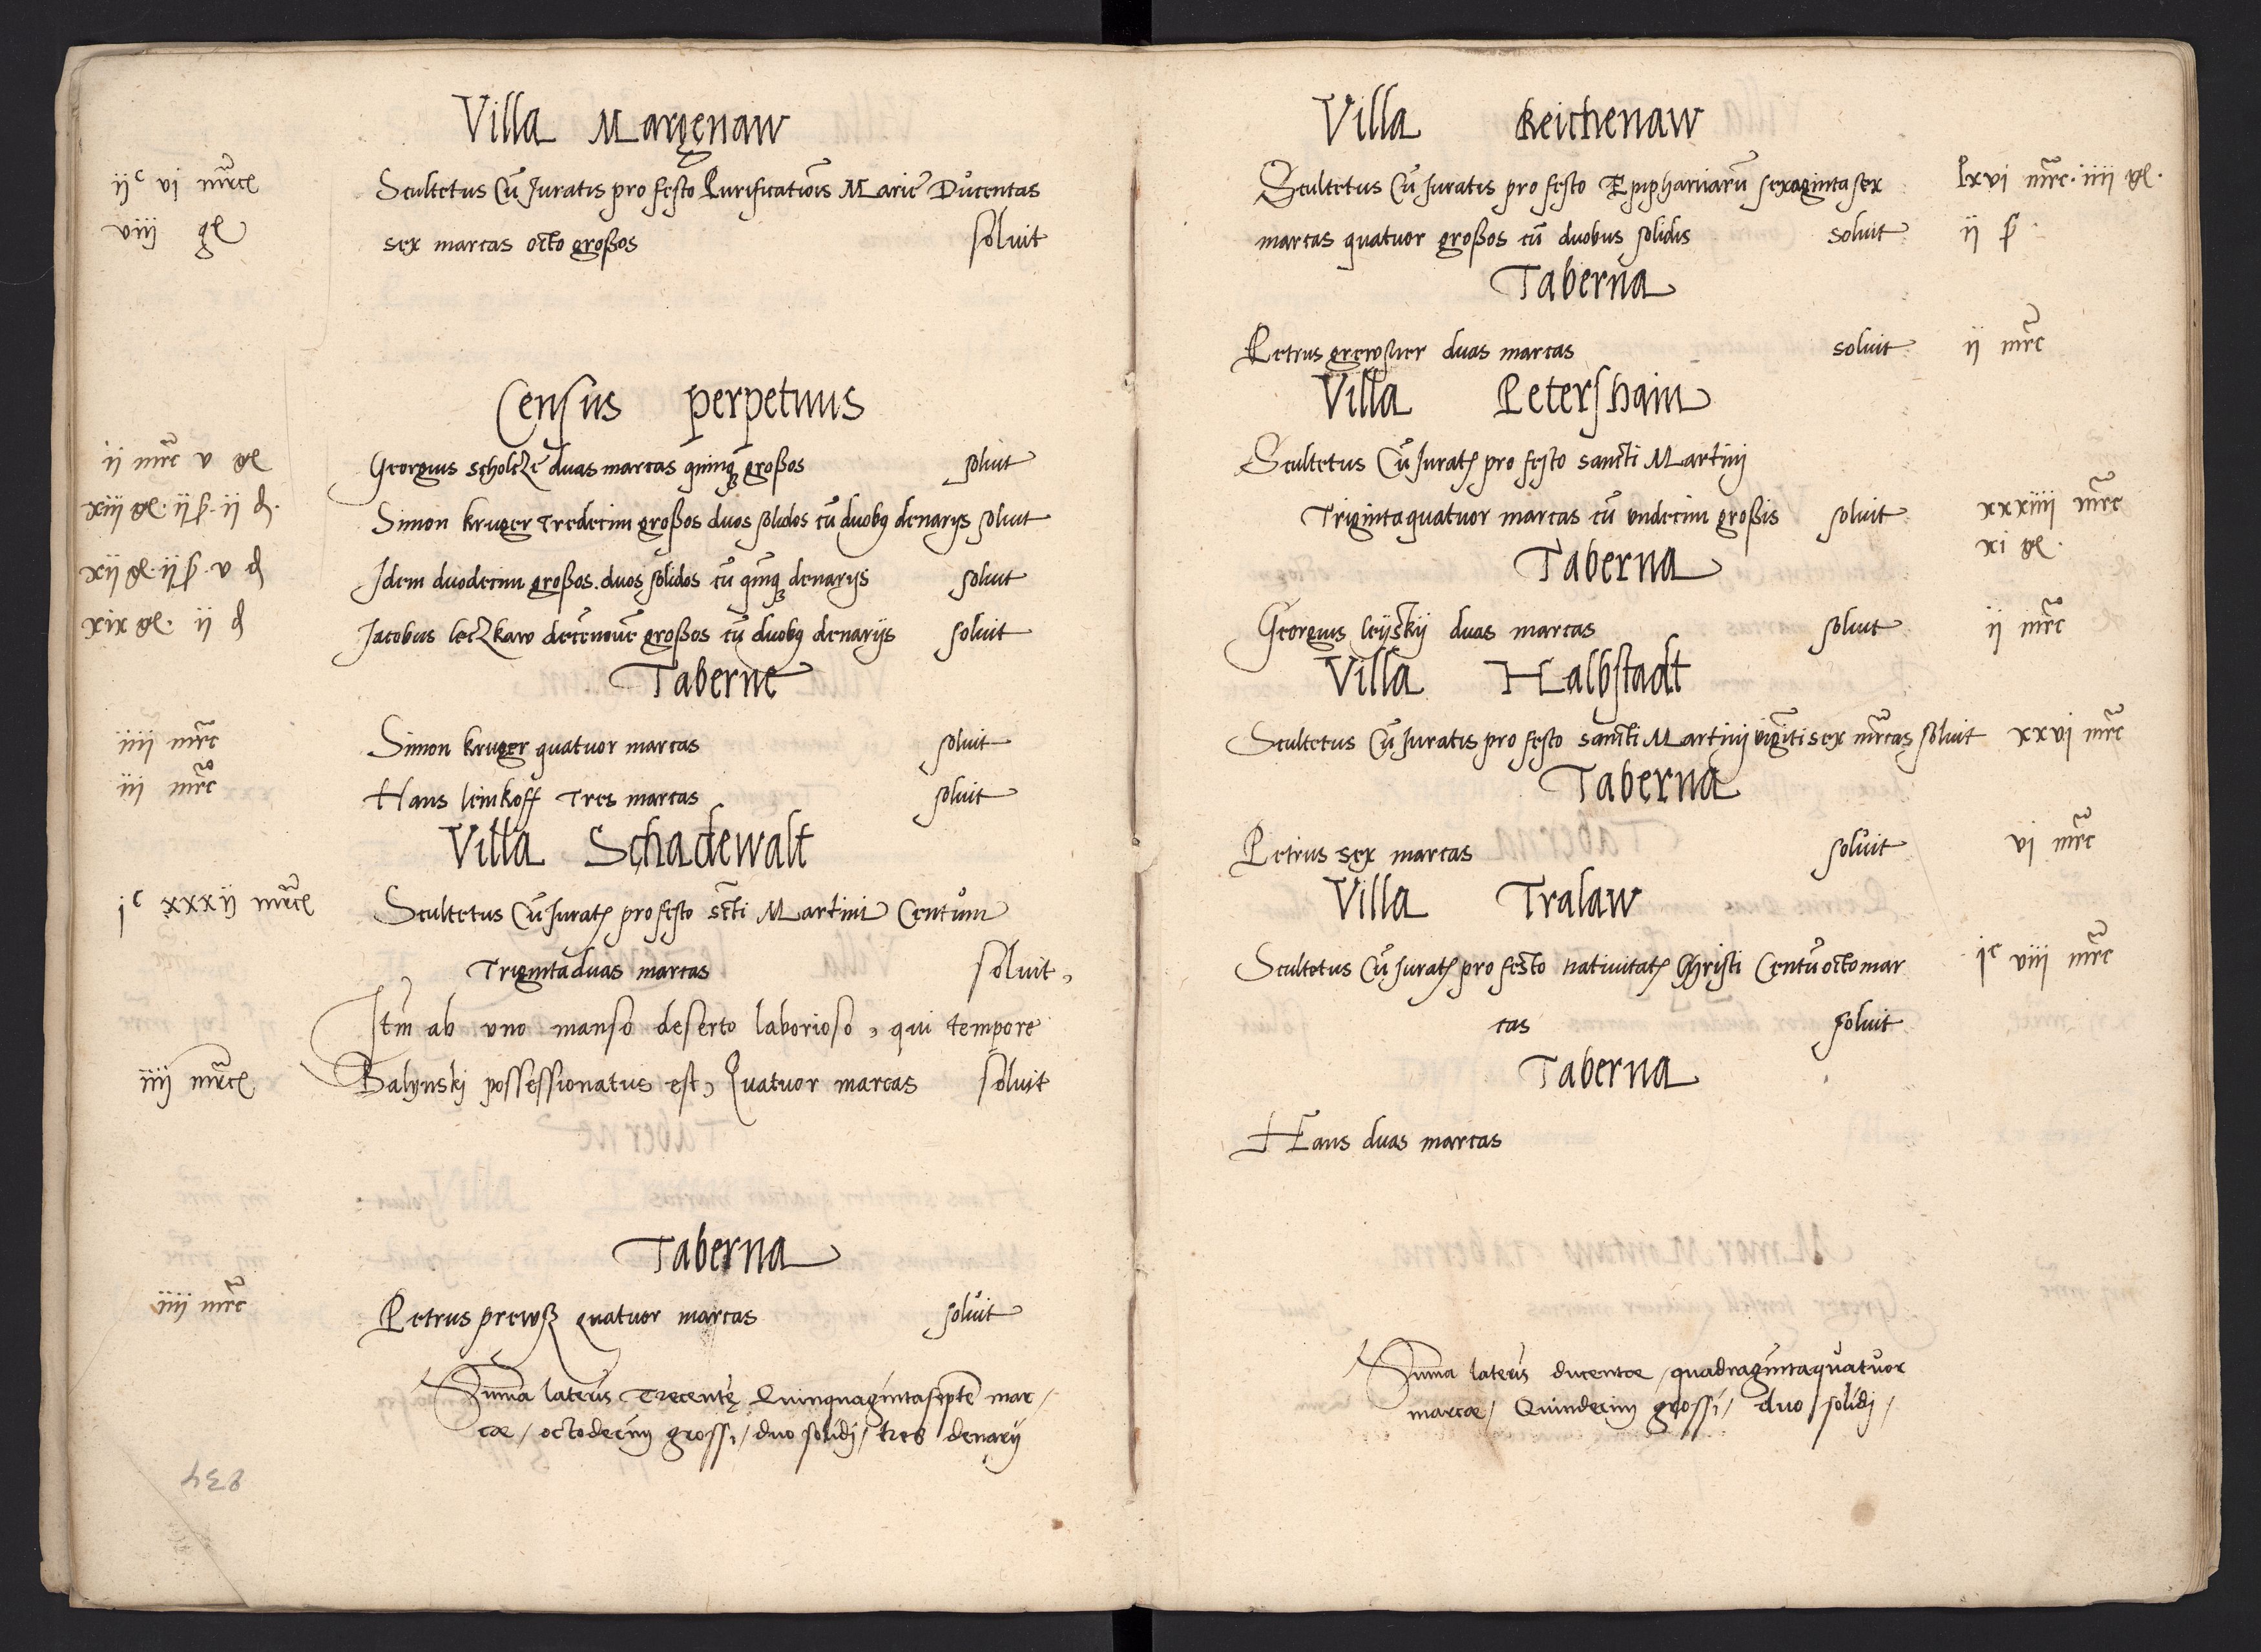 Villa Margenaw
ijc vi mrc Scultetus Cū Juratis pro festo Purificatiōis Marie Ducentas
viij gl sex marcas octo großos soluit
Census perpetuus
ij mrc v gl Georgius scholcze duas marcas quinqꝫ großos soluit
xiij gl. ij ẞ. ij ₰. Simon kruger Tredecim großos duos solidos cū duobꝫ denarijs soluit
xij gl. ij ẞ. v ₰ Idem duodecim großos. duos solidos cū quinqꝫ denarijs soluit
xix gl. ij ₰ Jacobus leczkaw decēnouē großos cū duobꝫ denarijs soluit
Taberne
iiij mrc Simon kruger quatuor marcas soluit
iij mrc Hans leinkoff Tres marcas soluit
Villa Schadewalt
jc xxxij mrc Scultetus Cū Juratꝭ pro festo scti Martini Centum
Trigintaduas marcas soluit,
Itm ab vno manso deserto laborioso, qui tempore
iiij mrc Balynskj possessionatus est, Quatuor marcas soluit
Taberna
iiij mrc Petrus prewß quatuor marcas soluit
Sūma lateris Trecentę Quinquagintaseptē mar/
cæ / octodecim grossi / duo solidj / tres denarij
Villa Reichenaw
Scultetus Cū Juratis pro festo Epiphaniarū sexagintasex lxvi mrc. iiij gl.
marcas quatuor großos cū duobus solidis soluit ij ẞ
Taberna
Petrus duas marcas soluit ij mrc
Villa Petershain
Scultetus Cū Juratꝭ pro festo sancti Martinj
Trigintaquatuor marcas cū vndecim großis soluit xxxiiij mrc
xi gl.
Taberna
Georgius leijskij duas marcas soluit ij mrc
Villa Halbstadt
Scultetus Cū Juratis pro festo sancti Martinj vigītisex mrcas soluit xxvi mrc
Taberna
Petrus sex marcas soluit vi mrc
Villa Tralaw
Scultetus Cū Juratꝭ pro festo natiuitatꝭ Christi Centū octo mar jc viij mrc
cas soluit
Taberna
Hans duas marcas
Sūma lateris ducentæ / quadragintaquatuor
marcæ / Quindecim grossi / duo solidj /